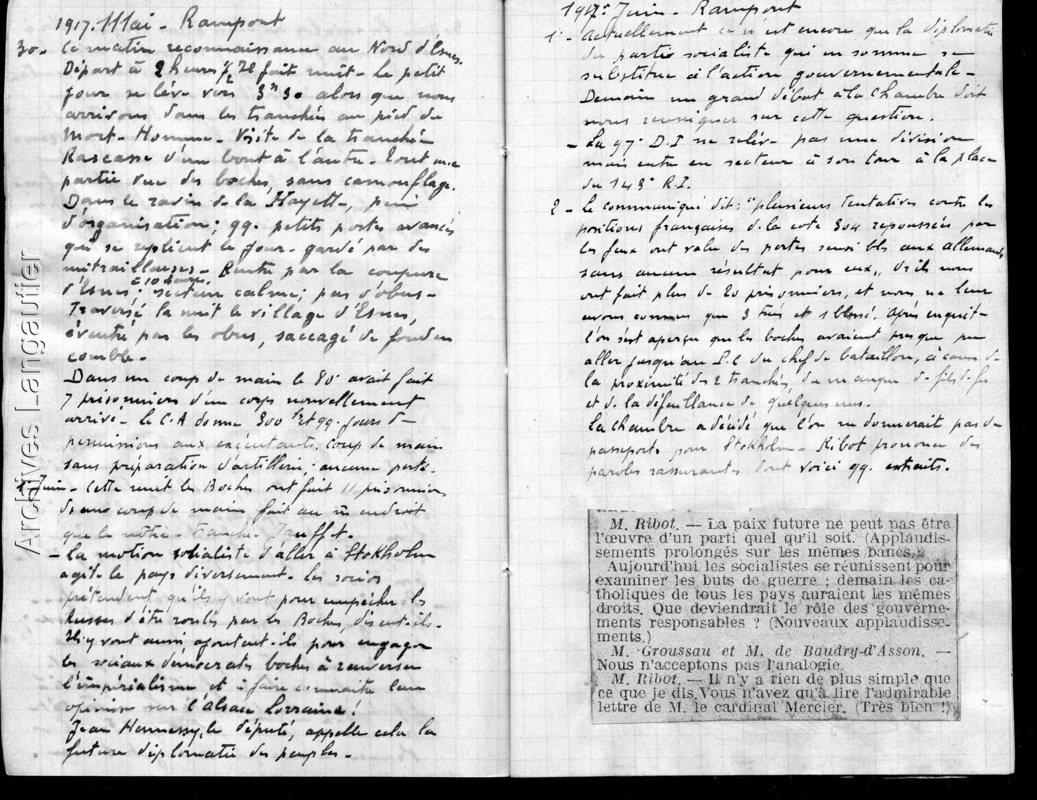 1917. Mai - Rampont
30 - Ce matin reconnaissance au Nord d'Esnes.
Départ à 2 heures 1/2 il fait nuit - Le petit
jour se lève vers 3h30 alors que nous
arrivons dans les tranchées au pied du
Mort-Homme. Visite de la tranchée
Rascasse d'un bout à l'autre. Toute une
partie vue des boches, sans camouflage.
Dans le ravin de la Hayette, peu
d'organisation; qq. petits postes avancés
qui se replient le jour - gardé par des
mitrailleuses - Rentré par la coupure
d'Esnes à 10 heures; secteur calme; pas d'obus -
Traversé la nuit le village d'Esnes,
éventré par les obus, saccagé de fond en
comble -
Dans un coup de main le 80e avait fait
7 prisonniers d'un corps nouvellement
arrivé - le C.A donne 300 et qq. jours de
permissions aux exécutants. Coup de main
sans préparation d'artillerie; aucune perte.
1 Juin - Cette nuit les Boches ont fait 11 prisonniers
dans un coup de main fait au m endroit
que le nôtre - tranchée Jouffet -
- La motion socialiste d'aller à Stokholm
agite le pays diversement - les socios
prétendent qu'ils y vont pour empêcher les
Russes d'être roulés par les Boches, disent-ils -
Ils y vont aussi ajoutent-ils pour engager
les sociaux démocrates boches à renverser
l'impérialisme et à faire connaître leur
opinion sur l'Alsace Lorraine!
Jean Hennessy, le député, appelle cela la
future diplomatie des peuples -
1917. Juin - Rampont
1 - Actuellement ce n'est encore que la diplomatie
du parti socialiste qui en somme se
substitue à l'action gouvernementale -
Demain un grand débat à la Chambre doit
nous renseigner sur cette question.
- La 97e D.I ne relève pas une division
mais entre en secteur à son tour à la place
du 143e R.I.
2 - Le communiqué dit: "plusieurs tentatives contre les
positions françaises de la cote 304 repoussées par
les feux ont valu des pertes sensibles aux allemands
sans aucun résultat pour eux,, Or ils nous
ont fait plus de 20 prisonniers, et nous ne leur
avons connus que 3 tués et 1 blessé. Après enquête
l'on s'est aperçu que les boches avaient presque pu
aller jusqu'au P.C du chef de bataillon, à cause de
la proximité des 2 tranchées, du manque de fils de fer
et de la défaillance de quelques uns.
La Chambre a décidé que l'on ne donnerait pas de
passeports pour Stokholm - Ribot prononce des
paroles rassurantes dont voici qq. extraits.
M. Ribot. — La paix future ne peut pas être
l'œuvre d'un parti quel qu'il soit. (Applaudis-
sements prolongés sur les mêmes bancs.)
Aujourd'hui les socialistes se réunissent pour
examiner les buts de guerre ; demain les ca-
tholiques de tous les pays auraient les mêmes
droits. Que deviendrait le rôle des gouverne-
ments responsables ? (Nouveaux applaudisse-
ments.)
M. Groussau et M. de Baudry-d'Asson. —
Nous n'acceptons pas l'analogie.
M. Ribot. — Il n'y a rien de plus simple que
ce que je dis. Vous n'avez qu'à lire l'admirable
lettre de M. le cardinal Mercier. (Très bien !)
Archives Langautier